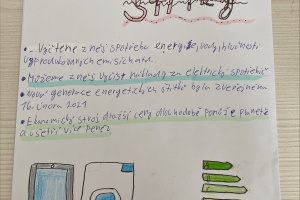 - Vyčteme z něj spotřebu energie, vody, hlučnosti
vyprodukovaných emisích atd.
• Můžeme z něj vyčíst náklady za elektrický spotřebič
• Nová generace energetických štítků byla zveřejněna
16. únor 2021
• Ekonomický stroj dražší ceny dlouhodobě pomůže planetě
a ušetří více peněz